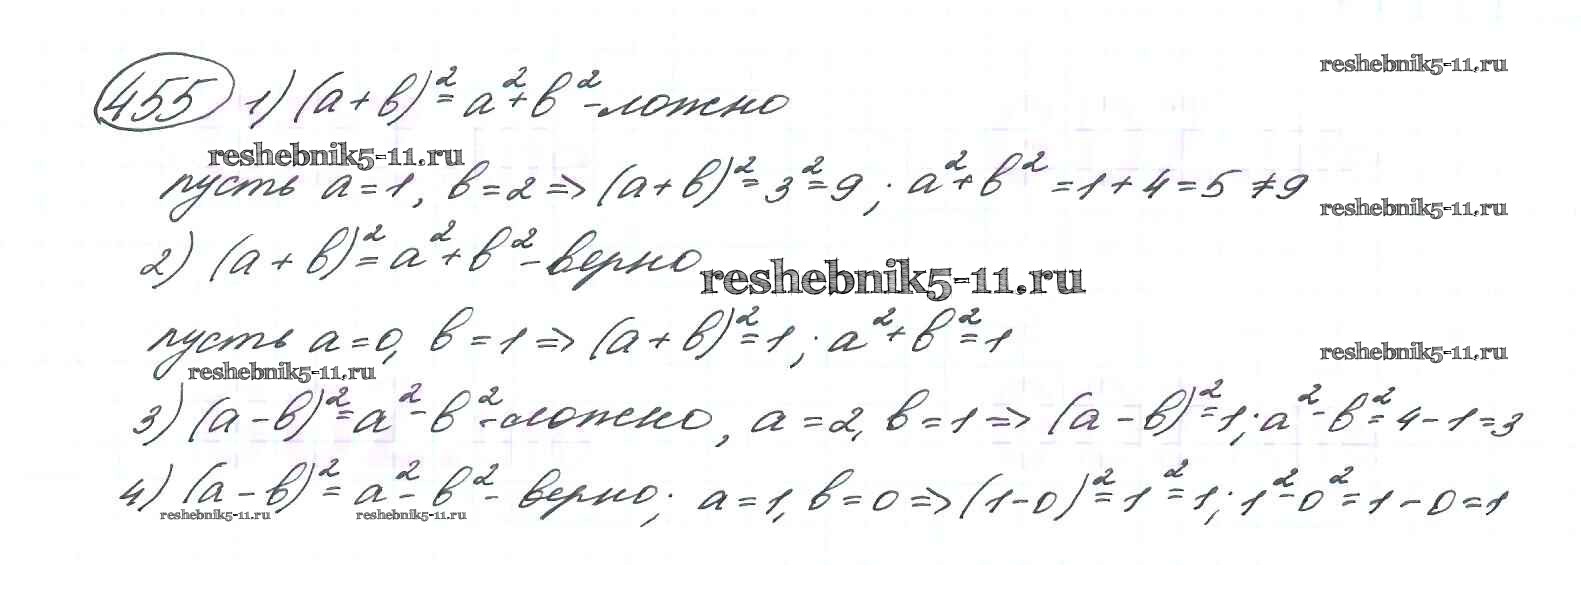 455 1) (a+b)²=a²+b²-ложно
reshebnik5-11.ru
reshebnik5-11.ru
пусть a=1, b=2=>(a+b)²=3²=9; a²+b²=1+4=5≠9
reshebnik5-11.ru
2) (a+b)²=a²+b²-верно
reshebnik5-11.ru
пусть a=0, b=1=>(a+b)²=1; a²+b²=1
reshebnik5-11.ru
reshebnik5-11.ru
3) (a-b)²=a²-b²-ложно, a=2, b=1=>(a-b)²=1; a²-b²=4-1=3
4) (a-b)²=a²-b²- верно; a=1, b=0=>(1-0)²=1²=1; 1²-0²=1-0=1
reshebnik5-11.ru reshebnik5-11.ru